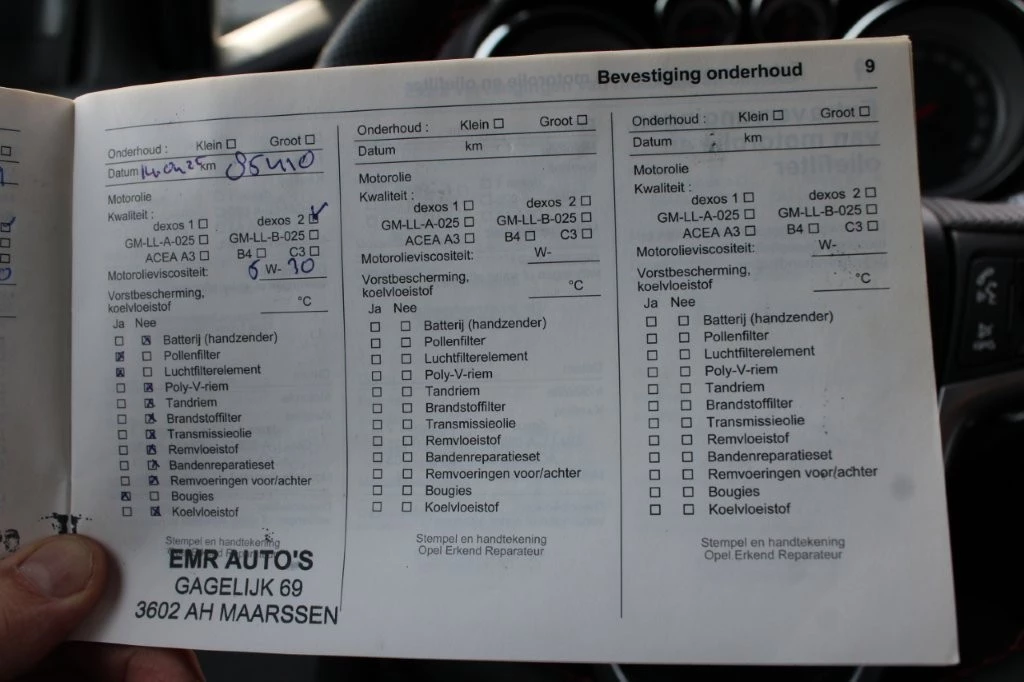 Bevestiging onderhoud 9
Onderhoud : Klein Groot
Datum km 85410
Motorolie
Kwaliteit :
dexos 1 dexos 2
GM-LL-A-025 GM-LL-B-025
ACEA A3 B4 C3
Motorolieviscositeit: W-30
Vorstbescherming,
koelvloeistof °C
Ja Nee
Batterij (handzender)
Pollenfilter
Luchtfilterelement
Poly-V-riem
Tandriem
Brandstoffilter
Transmissieolie
Remvloeistof
Bandenreparatieset
Remvoeringen voor/achter
Bougies
Koelvloeistof
Stempel en handtekening
Opel Erkend Reparateur
EMR AUTO'S
GAGELIJK 69
3602 AH MAARSSEN
Onderhoud : Klein Groot
Datum km
Motorolie
Kwaliteit :
dexos 1 dexos 2
GM-LL-A-025 GM-LL-B-025
ACEA A3 B4 C3
Motorolieviscositeit: W-
Vorstbescherming,
koelvloeistof °C
Ja Nee
Batterij (handzender)
Pollenfilter
Luchtfilterelement
Poly-V-riem
Tandriem
Brandstoffilter
Transmissieolie
Remvloeistof
Bandenreparatieset
Remvoeringen voor/achter
Bougies
Koelvloeistof
Stempel en handtekening
Opel Erkend Reparateur
Onderhoud : Klein Groot
Datum km
Motorolie
Kwaliteit :
dexos 1 dexos 2
GM-LL-A-025 GM-LL-B-025
ACEA A3 B4 C3
Motorolieviscositeit: W-
Vorstbescherming,
koelvloeistof °C
Ja Nee
Batterij (handzender)
Pollenfilter
Luchtfilterelement
Poly-V-riem
Tandriem
Brandstoffilter
Transmissieolie
Remvloeistof
Bandenreparatieset
Remvoeringen voor/achter
Bougies
Koelvloeistof
Stempel en handtekening
Opel Erkend Reparateur